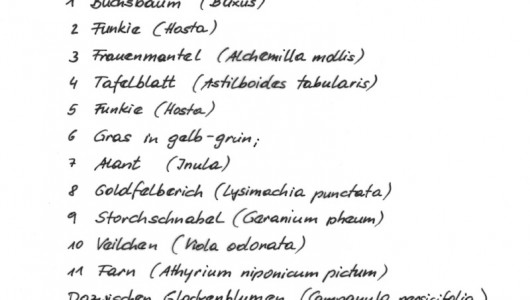 1 Buchsbaum (Buxus)
2 Funkie (Hosta)
3 Frauenmantel (Alchemilla mollis)
4 Tafelblatt (Astilboides tabularis)
5 Funkie (Hosta)
6 Gras in gelb-grün;
7 Alant (Inula)
8 Goldfelberich (Lysimachia punctata)
9 Storchschnabel (Geranium pheum)
10 Veilchen (Viola odonata)
11 Farn (Athyrium niponicum pictum)
Dazwischen Glockenblumen (Campanula persicifolia)